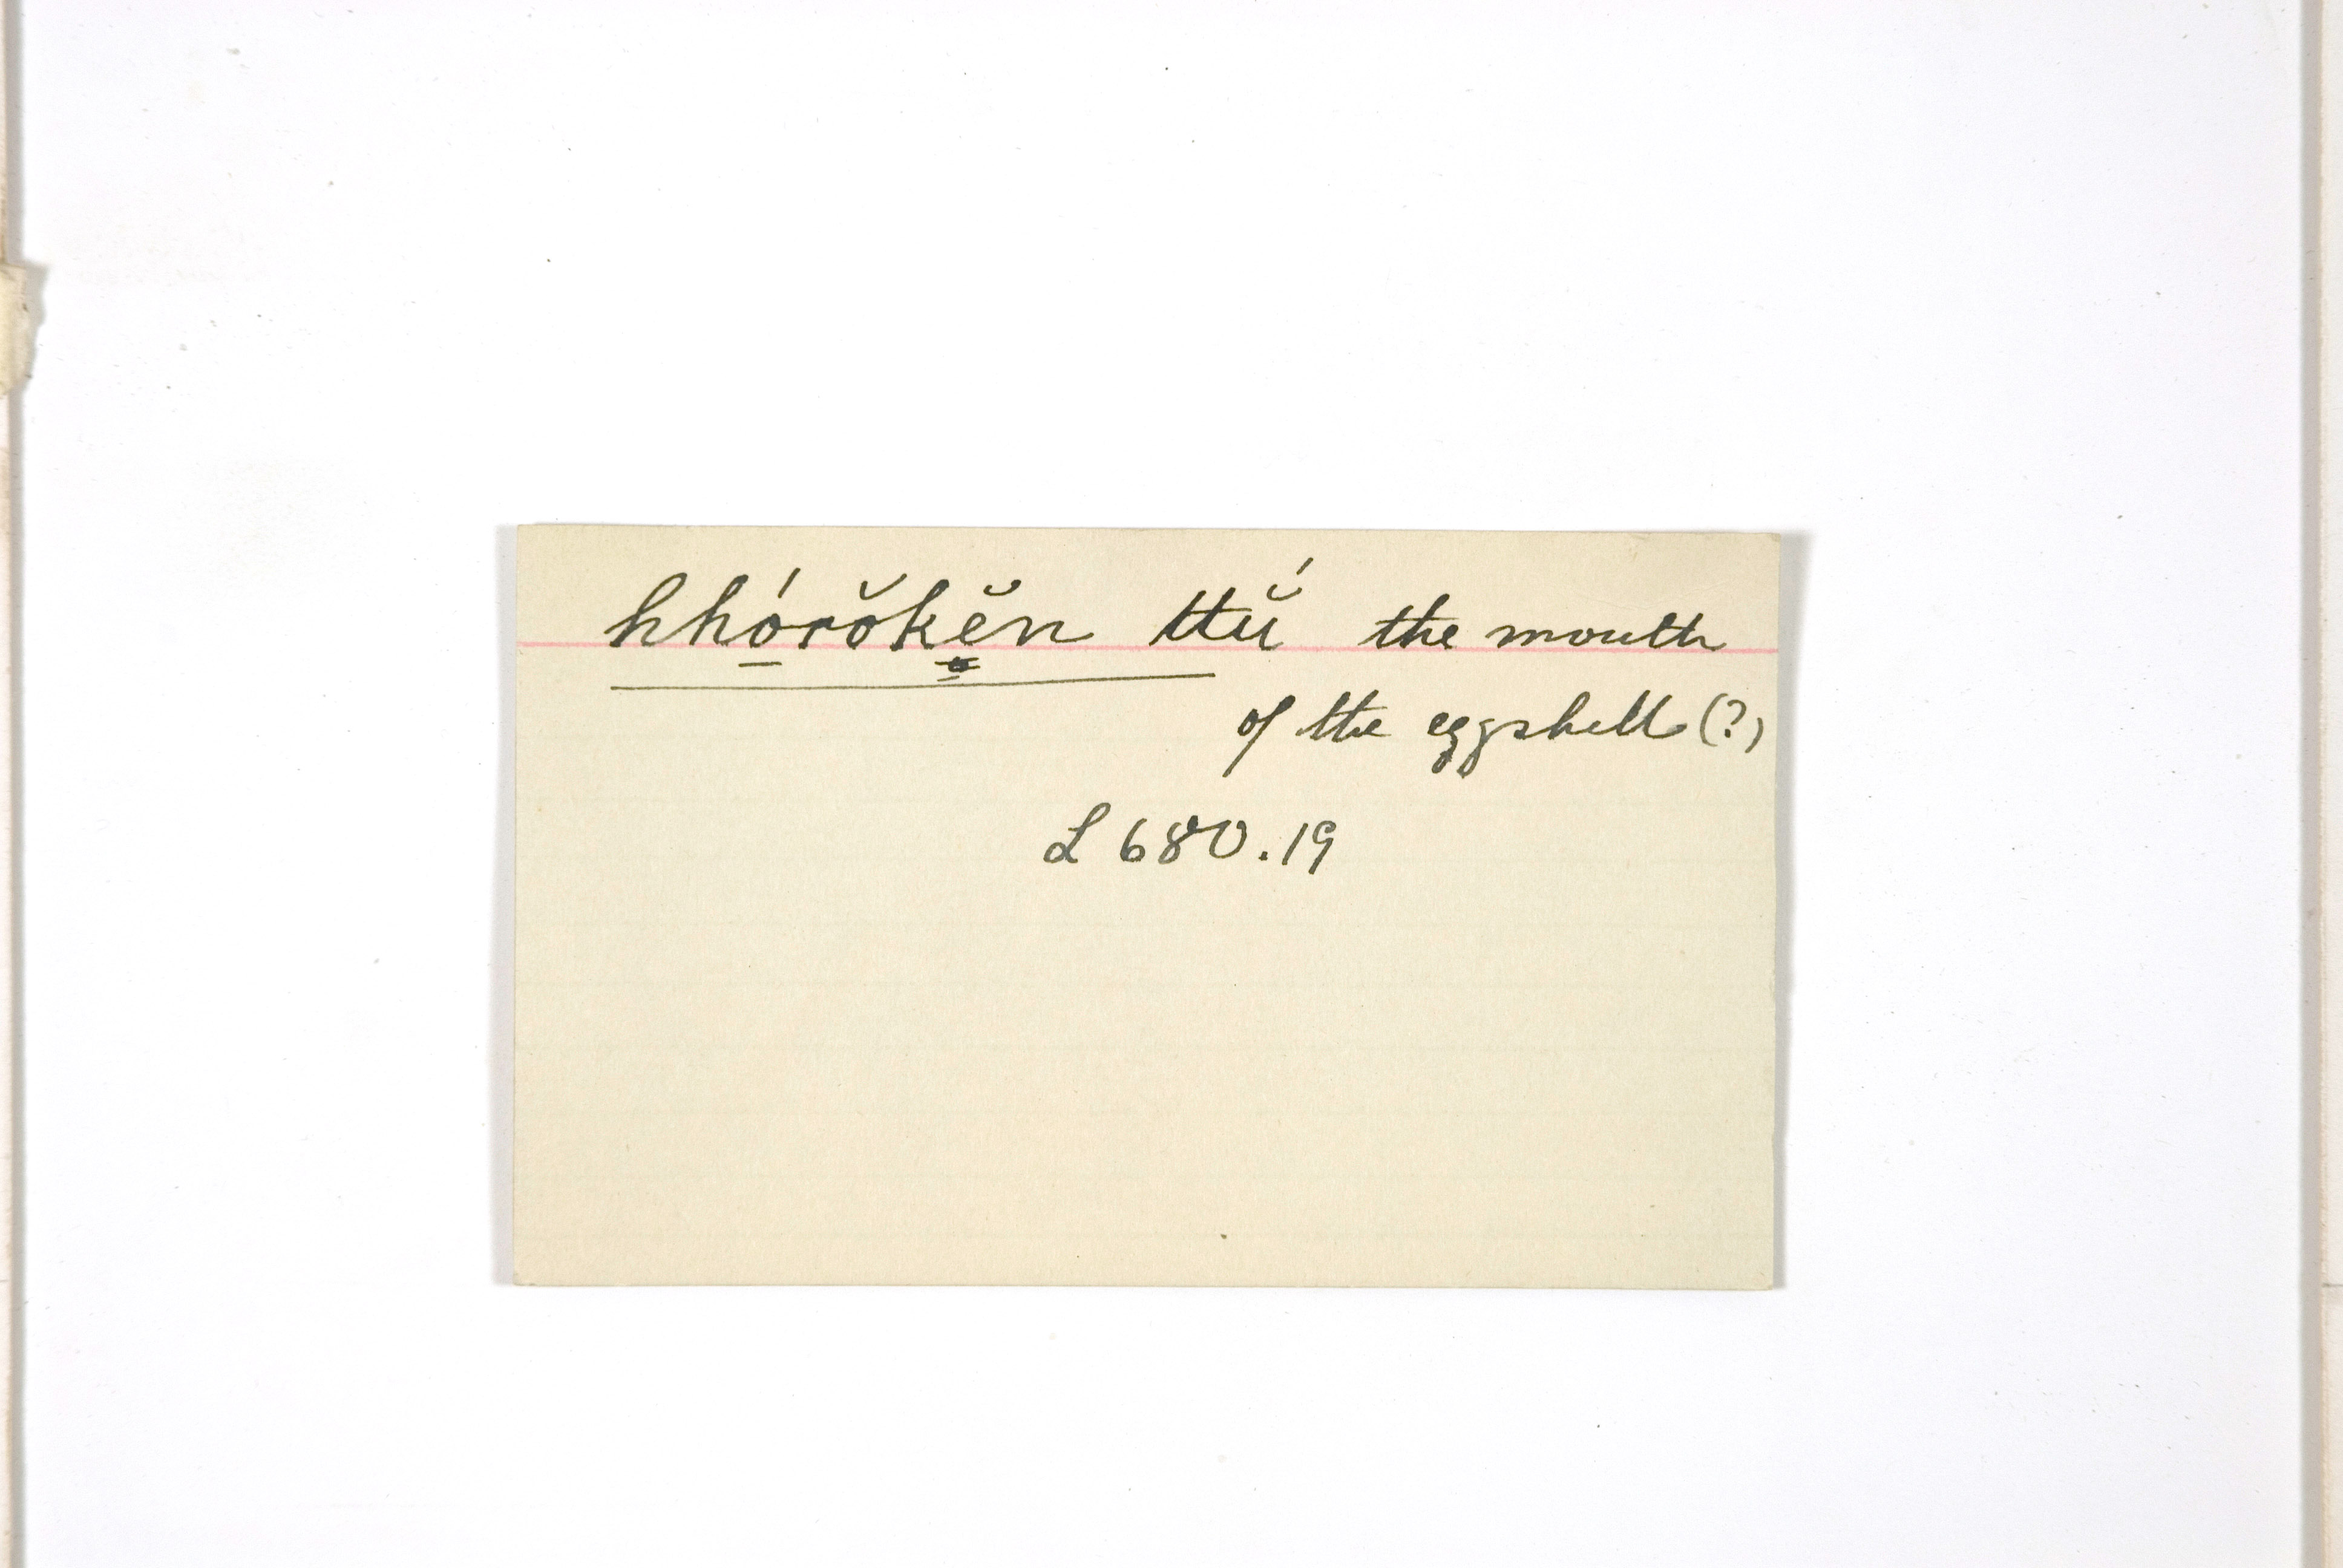 hhó̱rŏkĕ̳n ttŭ́ the mouth
of the eggshell (?)
L 680.19